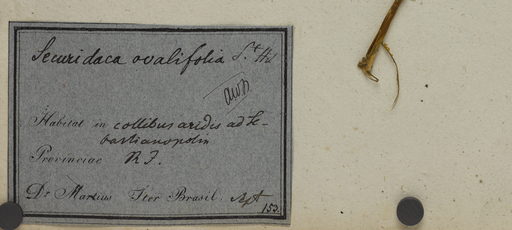 Securidaca ovalifolia St. Hil
Habitat in collibus aridis ad Se-
bastianopolin
Provinciae R J.
Dr Martius Iter Brasil. Sept
153